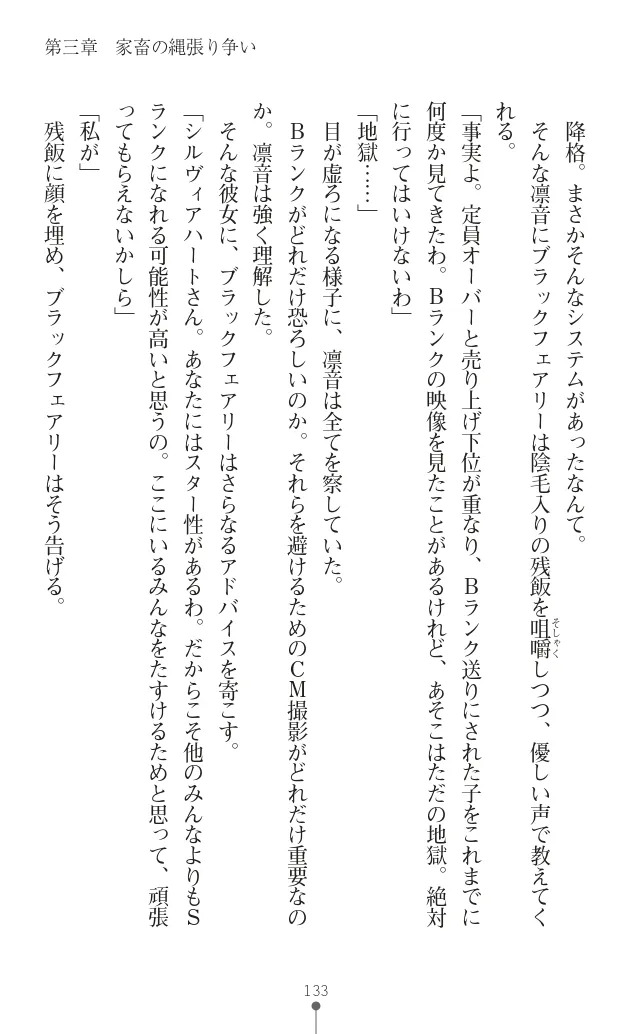 第三章　家畜の縄張り争い
　降格。まさかそんなシステムがあったなんて。
　そんな凛音にブラックフェアリーは陰毛入りの残飯を咀嚼しつつ、優しい声で教えてく
そしゃく
れる。
「事実よ。定員オーバーと売り上げ下位が重なり、Ｂランク送りにされた子をこれまでに
何度か見てきたわ。Ｂランクの映像を見たことがあるけれど、あそこはただの地獄。絶対
に行ってはいけないわ」
「地獄……」
　目が虚ろになる様子に、凛音は全てを察していた。
　Ｂランクがどれだけ恐ろしいのか。それらを避けるためのＣＭ撮影がどれだけ重要なの
か。凛音は強く理解した。
　そんな彼女に、ブラックフェアリーはさらなるアドバイスを寄こす。
「シルヴィアハートさん。あなたにはスター性があるわ。だからこそ他のみんなよりもＳ
ランクになれる可能性が高いと思うの。ここにいるみんなをたすけるためと思って、頑張
ってもらえないかしら」
「私が」
　残飯に顔を埋め、ブラックフェアリーはそう告げる。
133